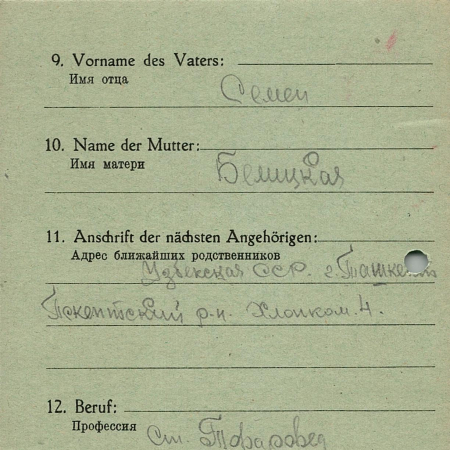 9. Vorname des Vaters:
Имя отца
Семен
10. Name der Mutter:
Имя матери
Белицкая
11. Anschrift der nächsten Angehörigen:
Адрес ближайших родственников
Узбекская ССР. г. Ташкент
Пскентский р-н. Хлопком. 4.
12. Beruf:
Профессия
Ст. Товаровед